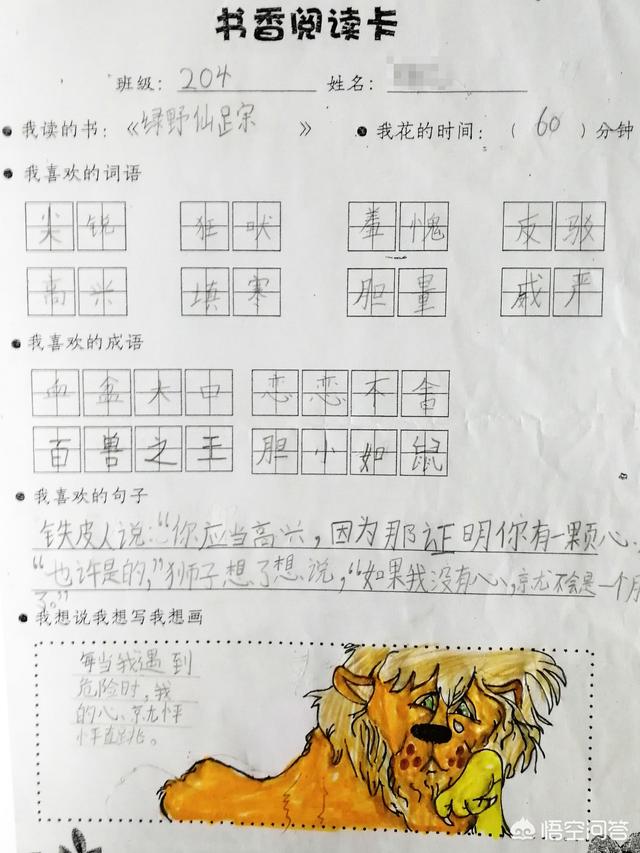 书香阅读卡
班级：204 姓名：
●我读的书：《绿野仙踪》 ●我花的时间：（60）分钟
●我喜欢的词语
尖锐 狂吠 羞愧 反驳
高兴 填塞 胆量 威严
●我喜欢的成语
血盆大口 恋恋不舍
百兽之王 胆小如鼠
●我喜欢的句子
铁皮人说：“你应当高兴，因为那证明你有一颗心。
“也许是的，”狮子想了想说，“如果我没有心，就不会是一个
了。”
●我想说我想写我想画
每当我遇到
危险时，我
的心就怦
怦直跳。
悟空问答